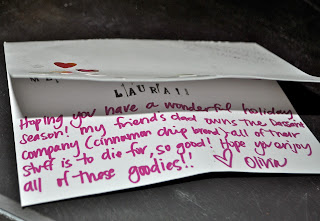 LAURA!!
Hoping you have a wonderful holiday
season! My friends dad owns the
company (cinnamon chip bread) all of their
stuff is to die for, so good! Hope you enjoy
all of those goodies!! ♡ Olivia